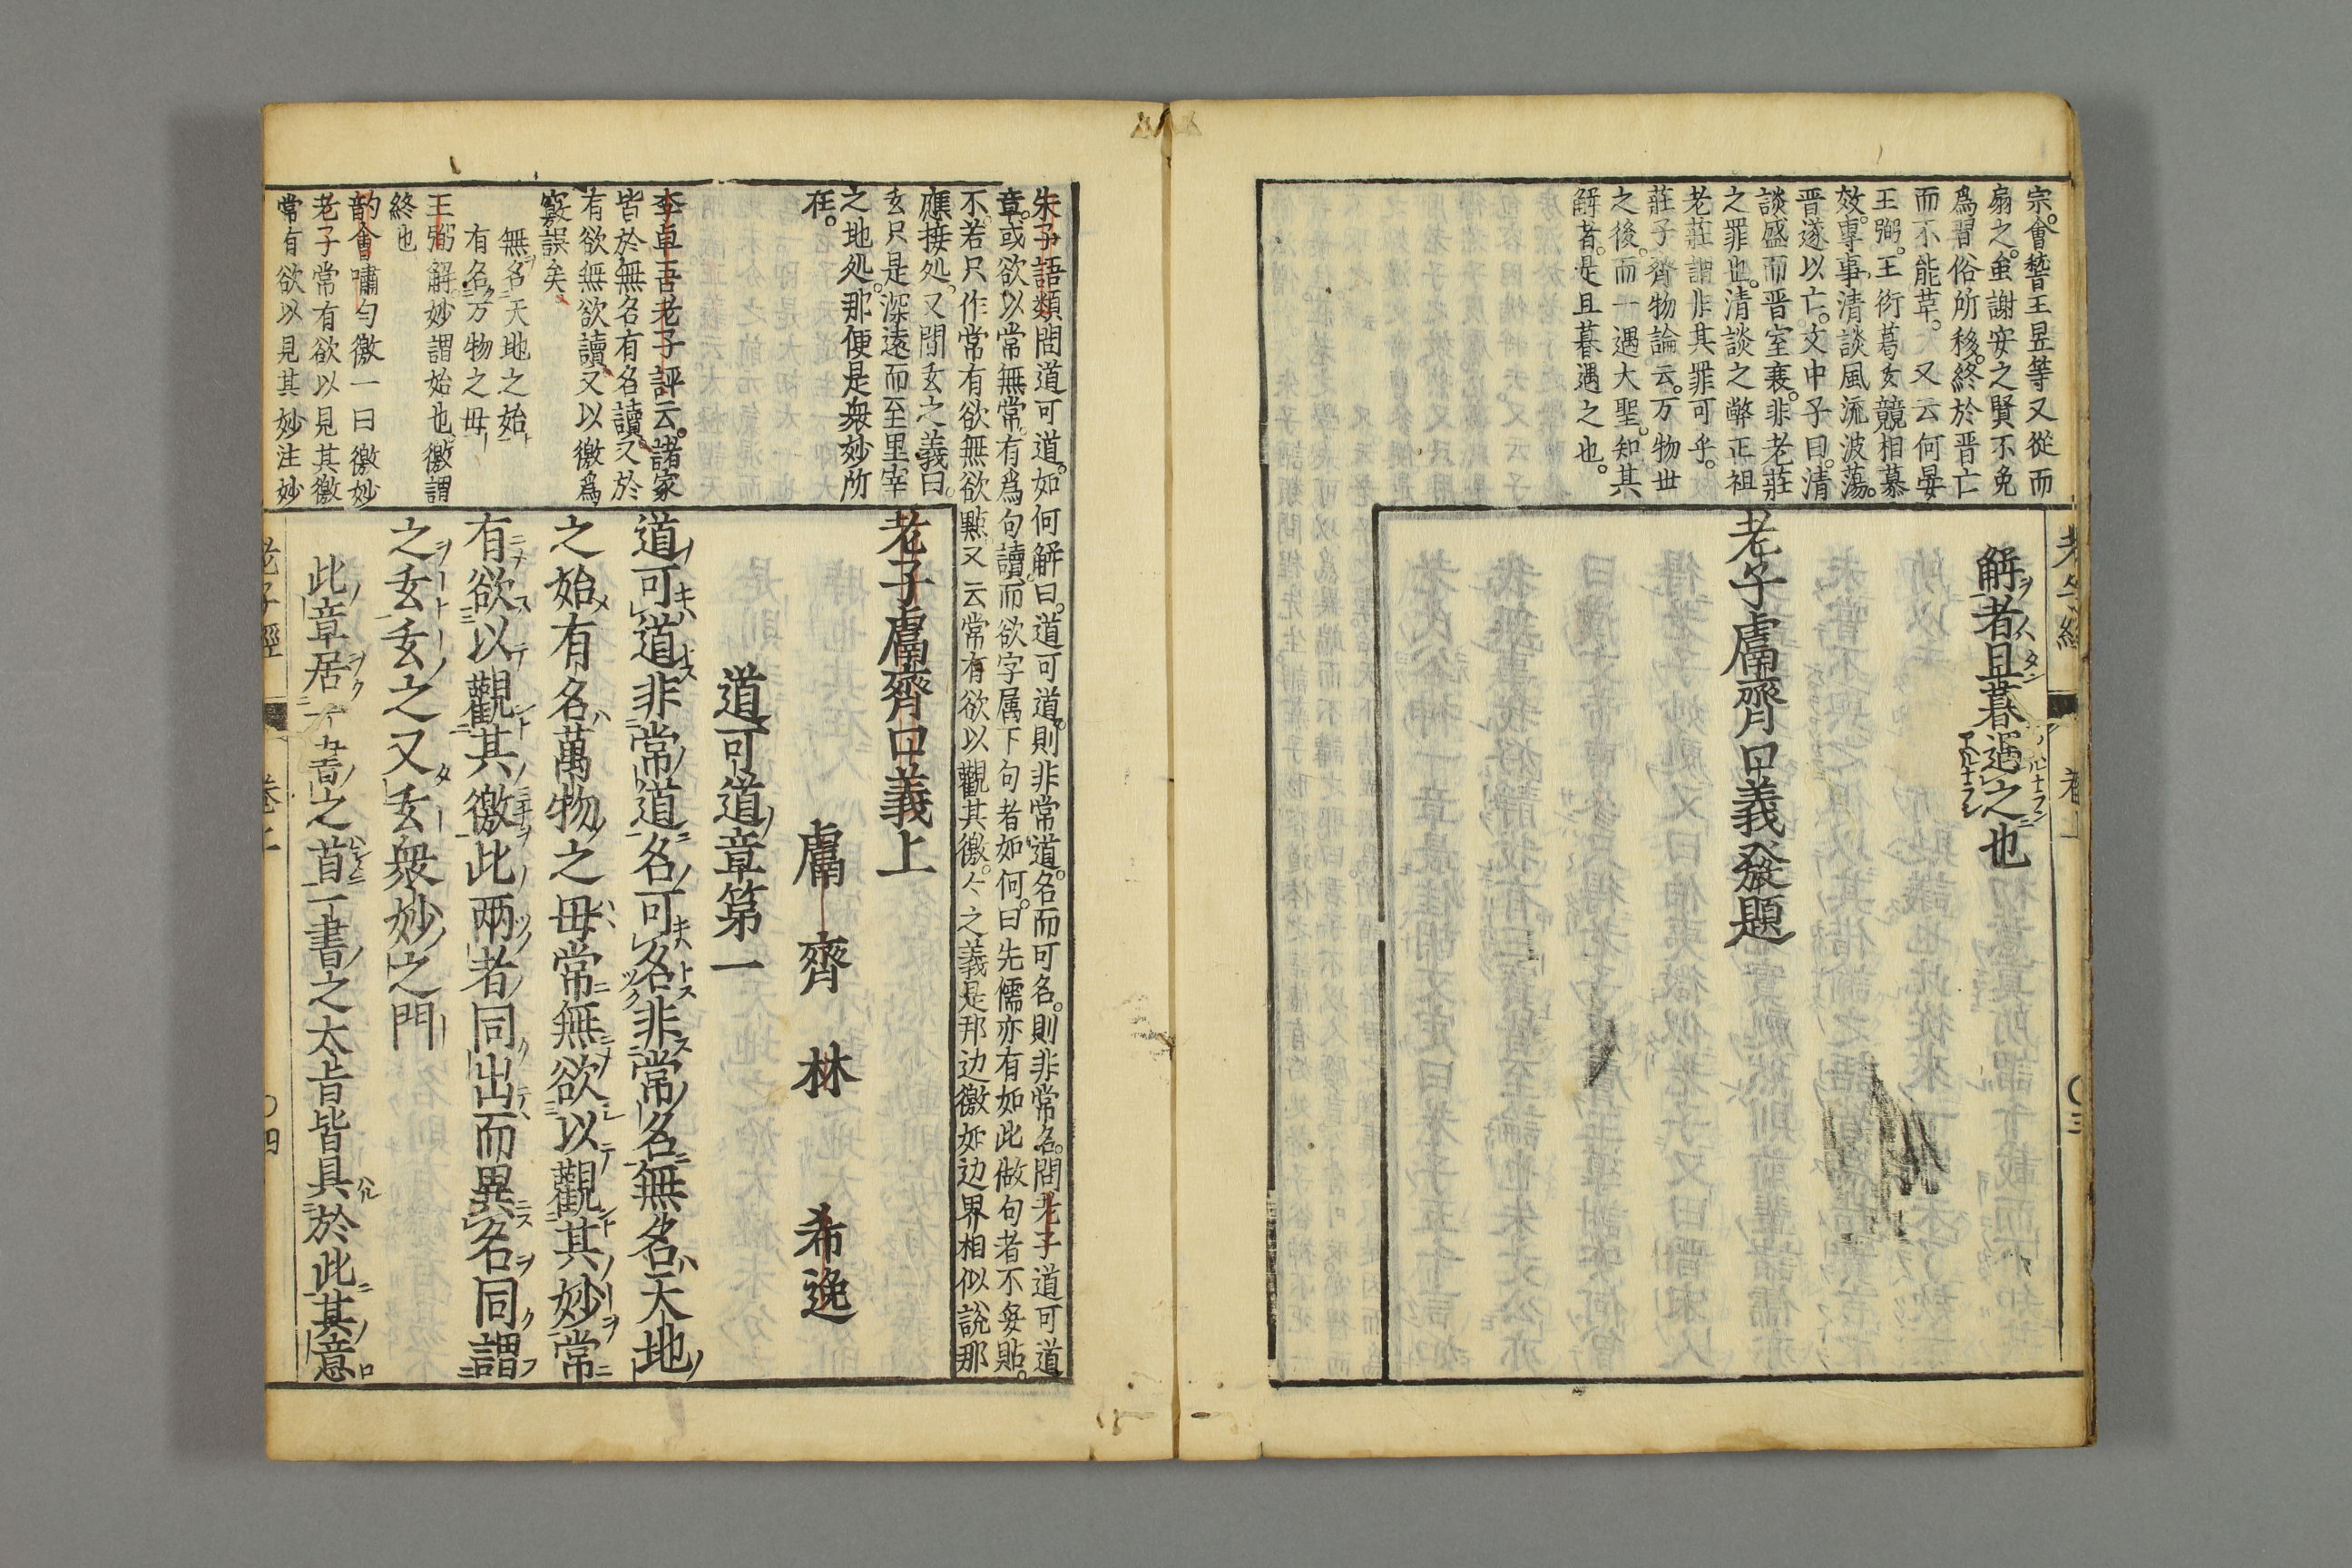 宗。會嵆王昱等又從而
扇之。虽謝安之賢不免
爲習俗所移。終於晋亡
而不能草。又云何晏
王弼。王衍葛玄競相慕
效。専事清談風流波蕩。
晋遂以亡。文中子曰。清
談盛而晋室衰。非老莊
之罪也。清談之弊正祖
老莊謂非其罪可乎。
莊子齊物論云。万物世
之後。而一遇大聖。知其
解者。是且暮遇之也。
老子經
解者且暮遇之也
老子鬳齋口義發題
朱子語類問道可道。如何解曰。道可道。則非常道。名而可名。則非常名。問老子道可道
章。或欲以常無常有爲句讀。而欲字属下句者如何。曰先儒亦有如此做句者不妥貼。
不若只作常有欲無欲點。又云常有欲以觀其徼。徼之義是那边徼如边界相似說那
應接処。又問玄之義曰。
玄只是深遠而至里宰
之地処。那便是衆妙所
在。
李卓吾老子評云。諸家
皆於無名有名讀又於
有欲無欲讀又以徼爲
竅誤矣
無名天地之始
有名万物之母
王弼解妙謂始也徼謂
終也
韵會嘯勻徼一曰徼妙
老子常有欲以見其徼
常有欲以見其妙注妙
老子鬳齋口義上
鬳齋林希逸
道可道章第一
道可道非常道名可名非常名無名天地
之始有名萬物之母常無欲以觀其妙常
有欲以觀其徼此兩者同出而異名同謂
之玄玄之又玄衆妙之門
此章居一書之首一書之大旨皆具於此其意
老子經 卷上 〇四